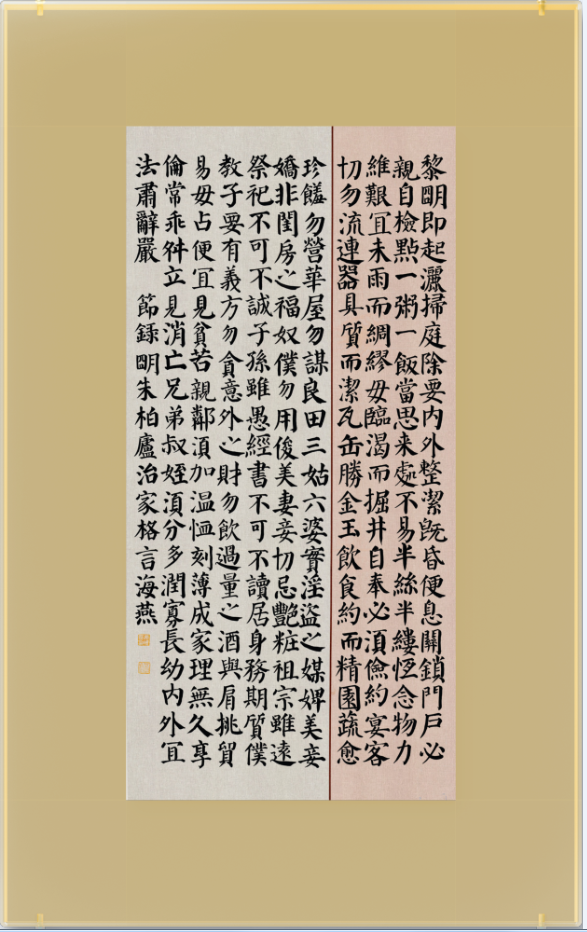 黎朙即起灑掃庭除要内外整潔既昏便息關鎖門戶必
親自檢點一粥一飯當思来處不易半絲半縷恆念物力
維艱冝未雨而綢繆毋臨渴而掘井自奉必須儉約宴客
切勿流連器具質而潔瓦缶勝金玉飲食約而精園蔬愈
珍饈勿營華屋勿謀良田三姑六婆實淫盜之媒婢美妾
嬌非閨房之福奴僕勿用俊美妻妾切忌艷粧祖宗雖遠
祭祀不可不誠子孫雖愚經書不可不讀居身務期質僕
教子要有義方勿貪意外之財勿飲過量之酒與肩挑貿
易毋占便冝見貧苦親鄰須加温恤刻薄成家理無久享
倫常乖舛立見消亡兄弟叔姪須分多潤寡長幼内外冝
法肅辭嚴 節錄朙朱柏廬治家格言海燕